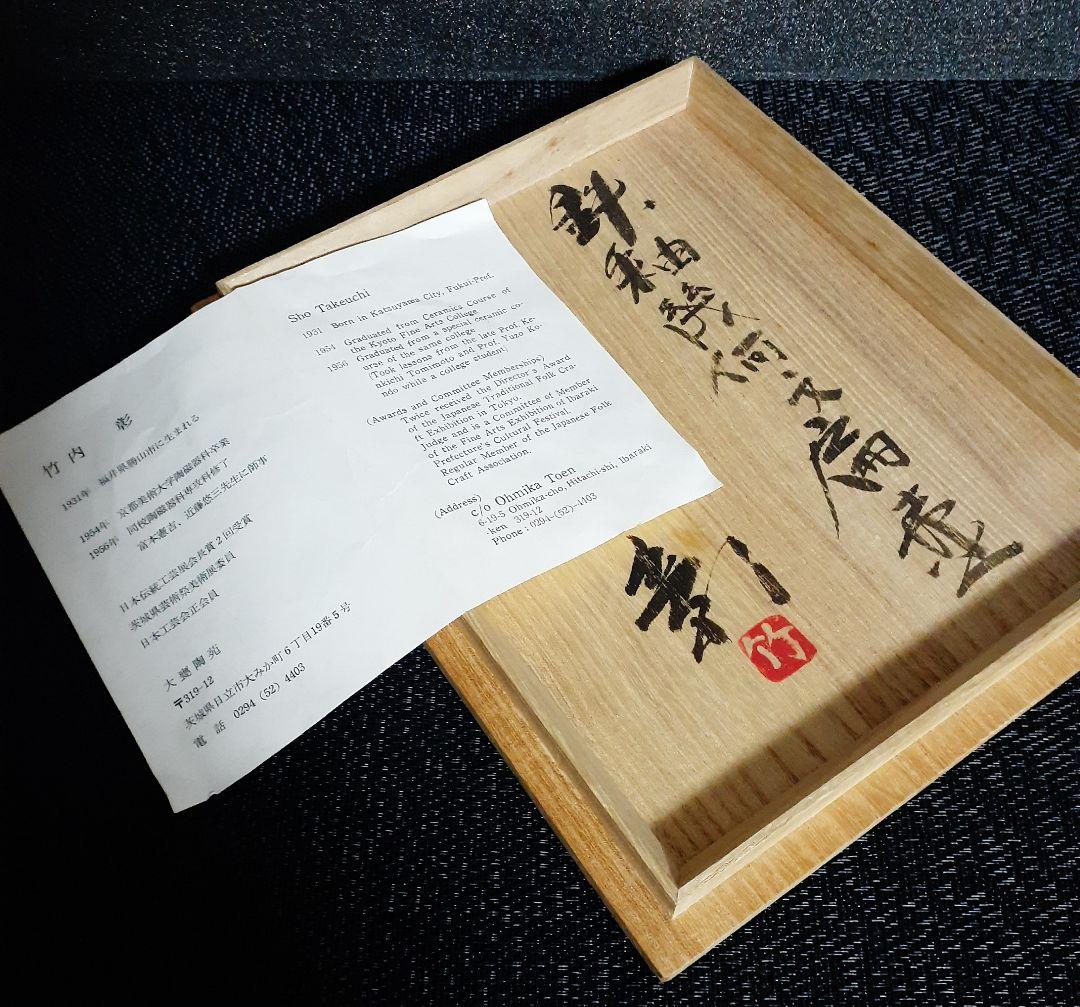 竹内 彰
1931年 福井県勝山市に生まれる
1954年 京都美術大学陶磁器科卒業
1956年 同校陶磁器科専攻科修了
富本憲吉、近藤悠三先生に師事
日本伝統工芸展会長賞2回受賞
茨城県芸術祭美術展委員
日本工芸会正会員
大甕陶苑
〒319-12
茨城県日立市大みか町6丁目19番5号
電話 0294 (52) 4403
Sho Takeuchi
1931 Born in Katsuyama City, Fukui-Pref.
1954 Graduated from Ceramics Course of
the Kyoto Fine Arts College
1956 Graduated from a special ceramic co-
urse of the same college
(Took lessons from the late Prof. Ke-
nkichi Tomimoto and Prof. Yuzo Ko-
ndo while a college student)
(Awards and Committee Memberships)
Twice received the Director's Award
of the Japanese Traditional Folk Cra-
ft Exhibition in Tokyo.
Judge and is a Committee of Member
of the Fine Arts Exhibition of Ibaraki
Prefecture's Cultural Festival.
Regular Member of the Japanese Folk
Craft Association.
(Address)
c/o Ohmika Toen
6-19-5 Ohmika-cho, Hitachi-shi, Ibaraki
-ken 319-12
Phone : 0294-(52)-4403
釉幾何文扁壷
彰
竹